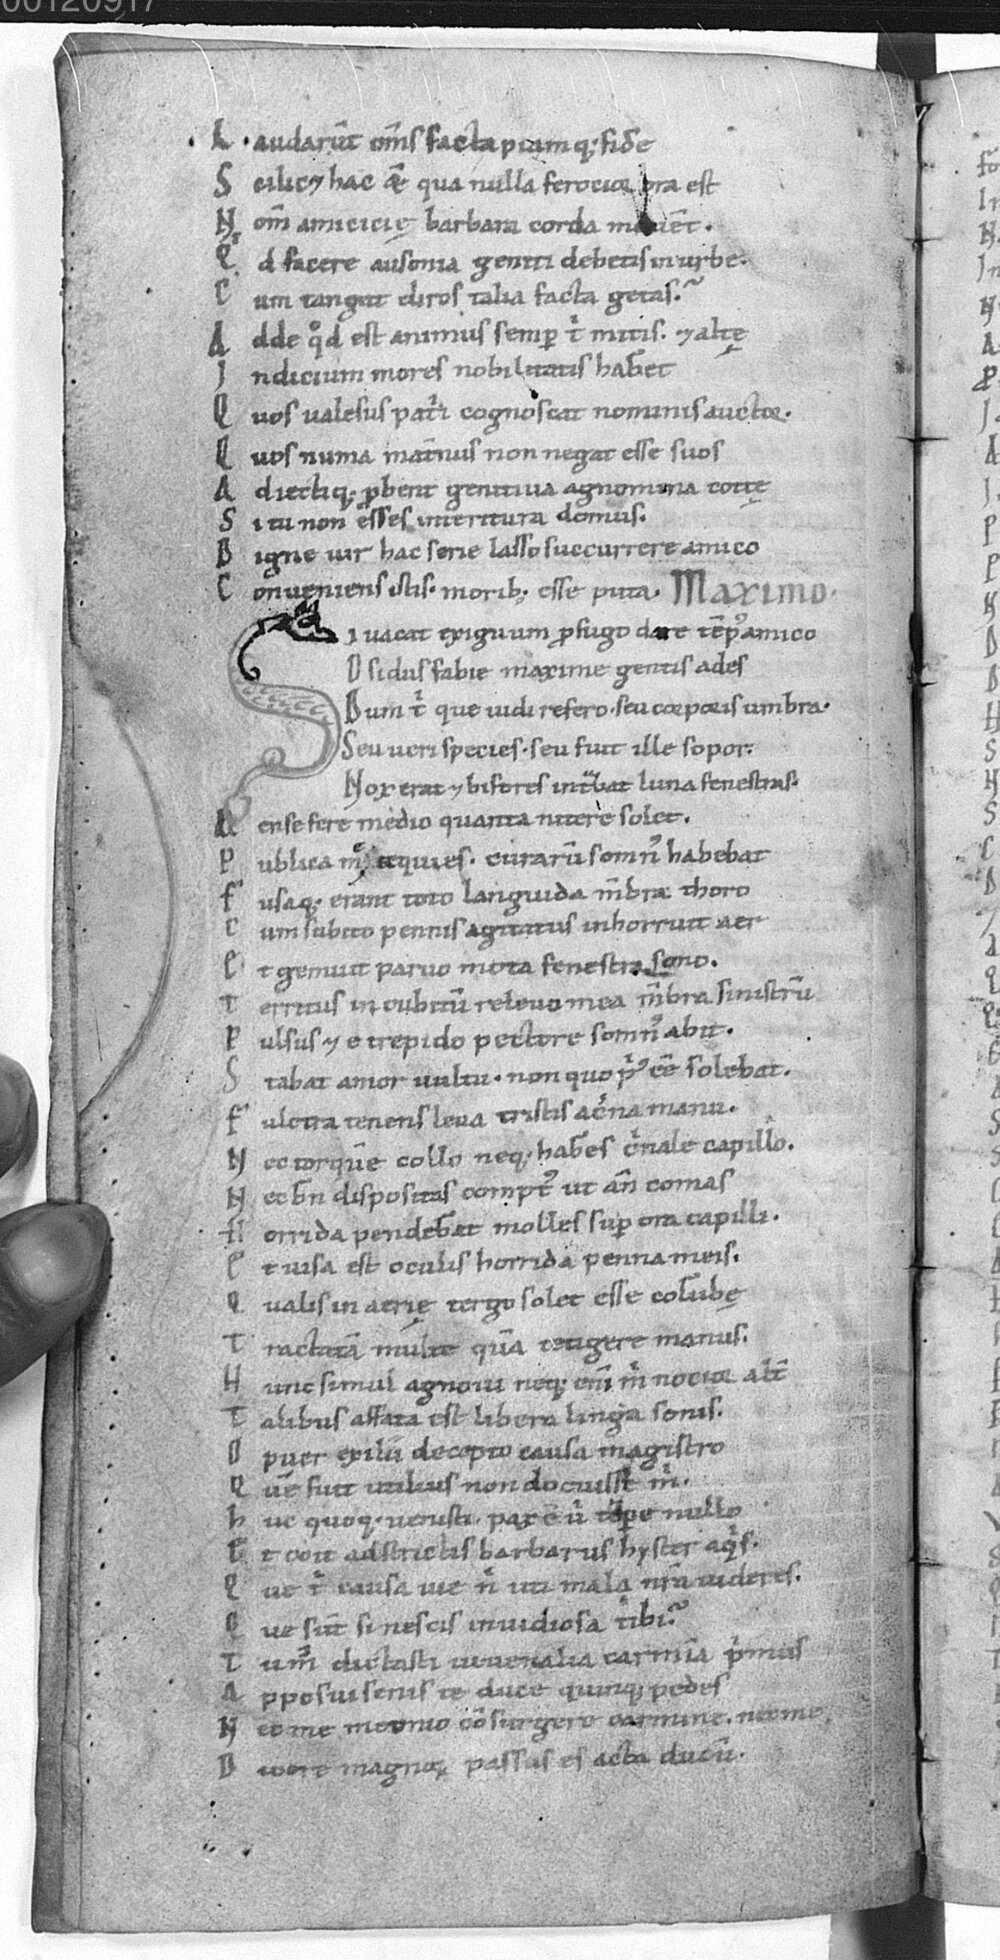 00120917
L audarūt om̄s facta piumq; fidē
S cilic⁊ hac ꝗ̄ qua nulla ferocior ora est
N om̄ amicicię barbara corda mouēt.
Q d facere ausonia geniti debetis in urbe.
C um tangat diros talia facta getas.
A dde qͦd est animus semꝑ t̄ mitis. ⁊ altę
I ndicium mores nobilitatis habēt
Q uos ualesus pat̄ni cognoscat nominis auctor.
Q uos numa mat̄nus non negat esse suos
A diectiq; ꝓbent genitiua agnomina cottę
S i tu non esses interitura domus.
D igne uir hac serie lasso succurrere amico
C onueniens istis. morib; esse puta. Maximo.
S i uacat exiguum ꝓfugo dare tēp᷒ amico
O sidus fabie maxime gentis ades
Dum t̄ que uidi refero. seu corporis umbra.
Seu ueri species. seu fuit ille sopor.
Nox erat ⁊ bifores int̄bat luna fenestras.
M ense fere medio quanta nitere solet.
P ublica mͤ requies. curarū somn᷒ habebat
F usaq; erant toto languida m̄bra thoro
C um subito pennis agitatus inhorruit aer
E t gemuit paruo mota fenestra sono.
T erritus in cubitū releuo mea m̄bra sinistrū
P ulsus ⁊ e trepido pectore somn᷒ abit.
S tabat amor uultu. non quo p̍᷒ eē solebat.
F ulcra tenens leua tristis ac̄na manu.
N ec torquē collo neq; habēs c̍nale capillo.
N ec bn̄ dispositas compt᷒ ut an̄ comas
H orrida pendebāt molles suꝑ ora capilli.
E t uisa est oculis horrida penna meis.
Q ualis in aerię tergo solet esse colūbę
T ractatā multe quā tetigere manus.
H unc simul agnoui neq; eni̅ m̍ nocior alt̄
T alibus affata est libera linga sonis.
O puer exilii decepto causa magistro
Q uē fuit utilius non docuisse m̍.
h uc quoq; uenisti. pax ē ū tēpe nullo
E t coit adstrictis barbarus hyster aq̍s.
Q ue t̍ causa uie n̍ uti mala nr̄a uideres.
Q ue sūt si nescis inuidiosa tibi.
T u m̍ dictasti iuuenalia carmīa p̍mus
A pposui senis te duce quinq; pedes
N ec me meonio cōsurgere carmine. nec me
D icere magnor̄ passus es acta ducū.